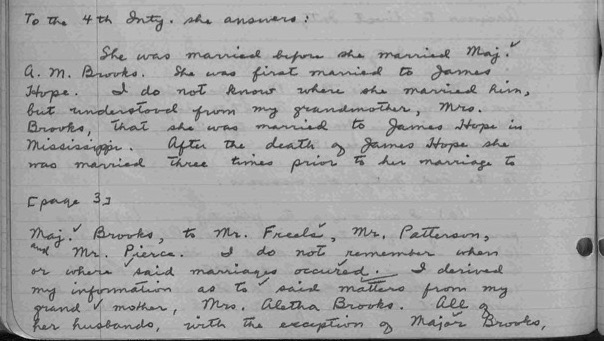 To the 4th Inty. she answers:
She was married before she married Maj.
A. M. Brooks. She was first married to James
Hope. I do not know where she married him,
but understood from my grandmother, Mrs.
Brooks, that she was married to James Hope in
Mississippi. After the death of James Hope she
was married three times prior to her marriage to
[page 3]
Maj. Brooks, to Mr. Freels, Mr. Patterson,
and Mr. Pierce. I do not remember when
or where said marriages occured. I derived
my information as to said matters from my
grand mother, Mrs. Aletha Brooks. All of
her husbands, with the exception of Major Brooks,